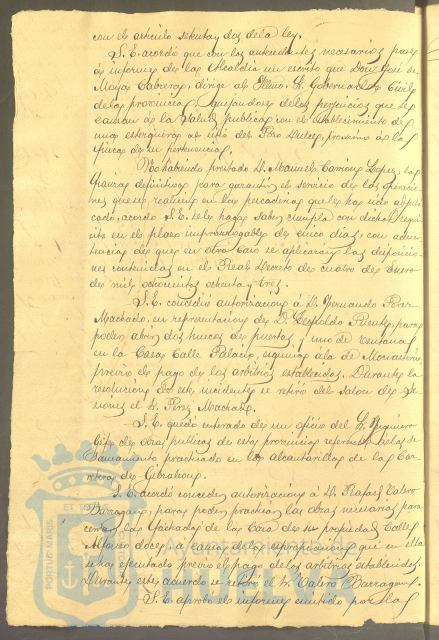 con el artículo setenta y dos de la ley.
S. E. acordó que con los antecedentes necesarios pase
á informe de la Alcaldia un escrito que Don José de
Mayas Cabeza, dirige al Iltmo. Sr. Gobernador Civil
de la provincia, quejandose de los perjuicios que se
causan á la salud publica con el establecimiento de
unas estergueras al sitio del Pozo Dulce, proximo á la
finca de su pertenencia.
No habiendo prestado D. Manuel Carrion Lopez, la
fianza definitiva para garantir el servicio de las operacio-
nes que se realicen en la pescaderia que le ha sido adjudi-
cado, acordó S. E. se le haga saber cumpla con dicho requi-
sito en el plazo improrrogable de cinco dias, con adver-
tencia de que en otro caso se aplicarán las disposicio-
nes contenidas en el Real Decreto de cuatro de Enero
de mil ochocientos ochenta y tres.
S. E. concedió autorizacion á D. Fernando Perez
Machado, en representacion de D. Leopoldo Fuentes, para
poder abrir dos huecos de puertas y uno de ventana
en la Casa, Calle Palacio, esquina á la de Monasterio,
previo el pago de los arbitrios establecidos. Durante la
resolucion de este incidente se retiró del Salon de Se-
siones el Sr. Perez Machado.
S. E. quedó enterado de un oficio del Sr. Ingeniero
Gefe de obras publicas de esta provincia referente al
saneamiento practicado en las alcantarillas de la Car-
retera de Gibraleon.
S. E. acordó conceder autorizacion á D. Rafael Valero
Barragan, para poder practicar las obras necesarias para
cerrar las fachadas de la Casa de su propiedad Calle
Alfonso doce, á causa de la expropiacion que en ella
se ha ejecutado previo el pago de los arbitrios establecidos.
Durante este acuerdo se retiró el Sr. Valero Barragan.
S. E. aprobó el informe emitido por la
PORTUS MARIS
ET TE
Ayuntamiento de
HUELVA